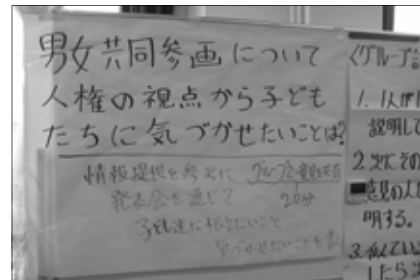 男女共同参画について
人権の視点から子ども
たちに気づかせたいことは?
情報提供を参考に グループで意見を共有
発表会を通じて 20分
子ども達に伝えたいこと
気づかせたいことを
〈グループ討
1. 1人が1
説明して
2. 次にその
意見の人
明する。
3. 似てい
したら